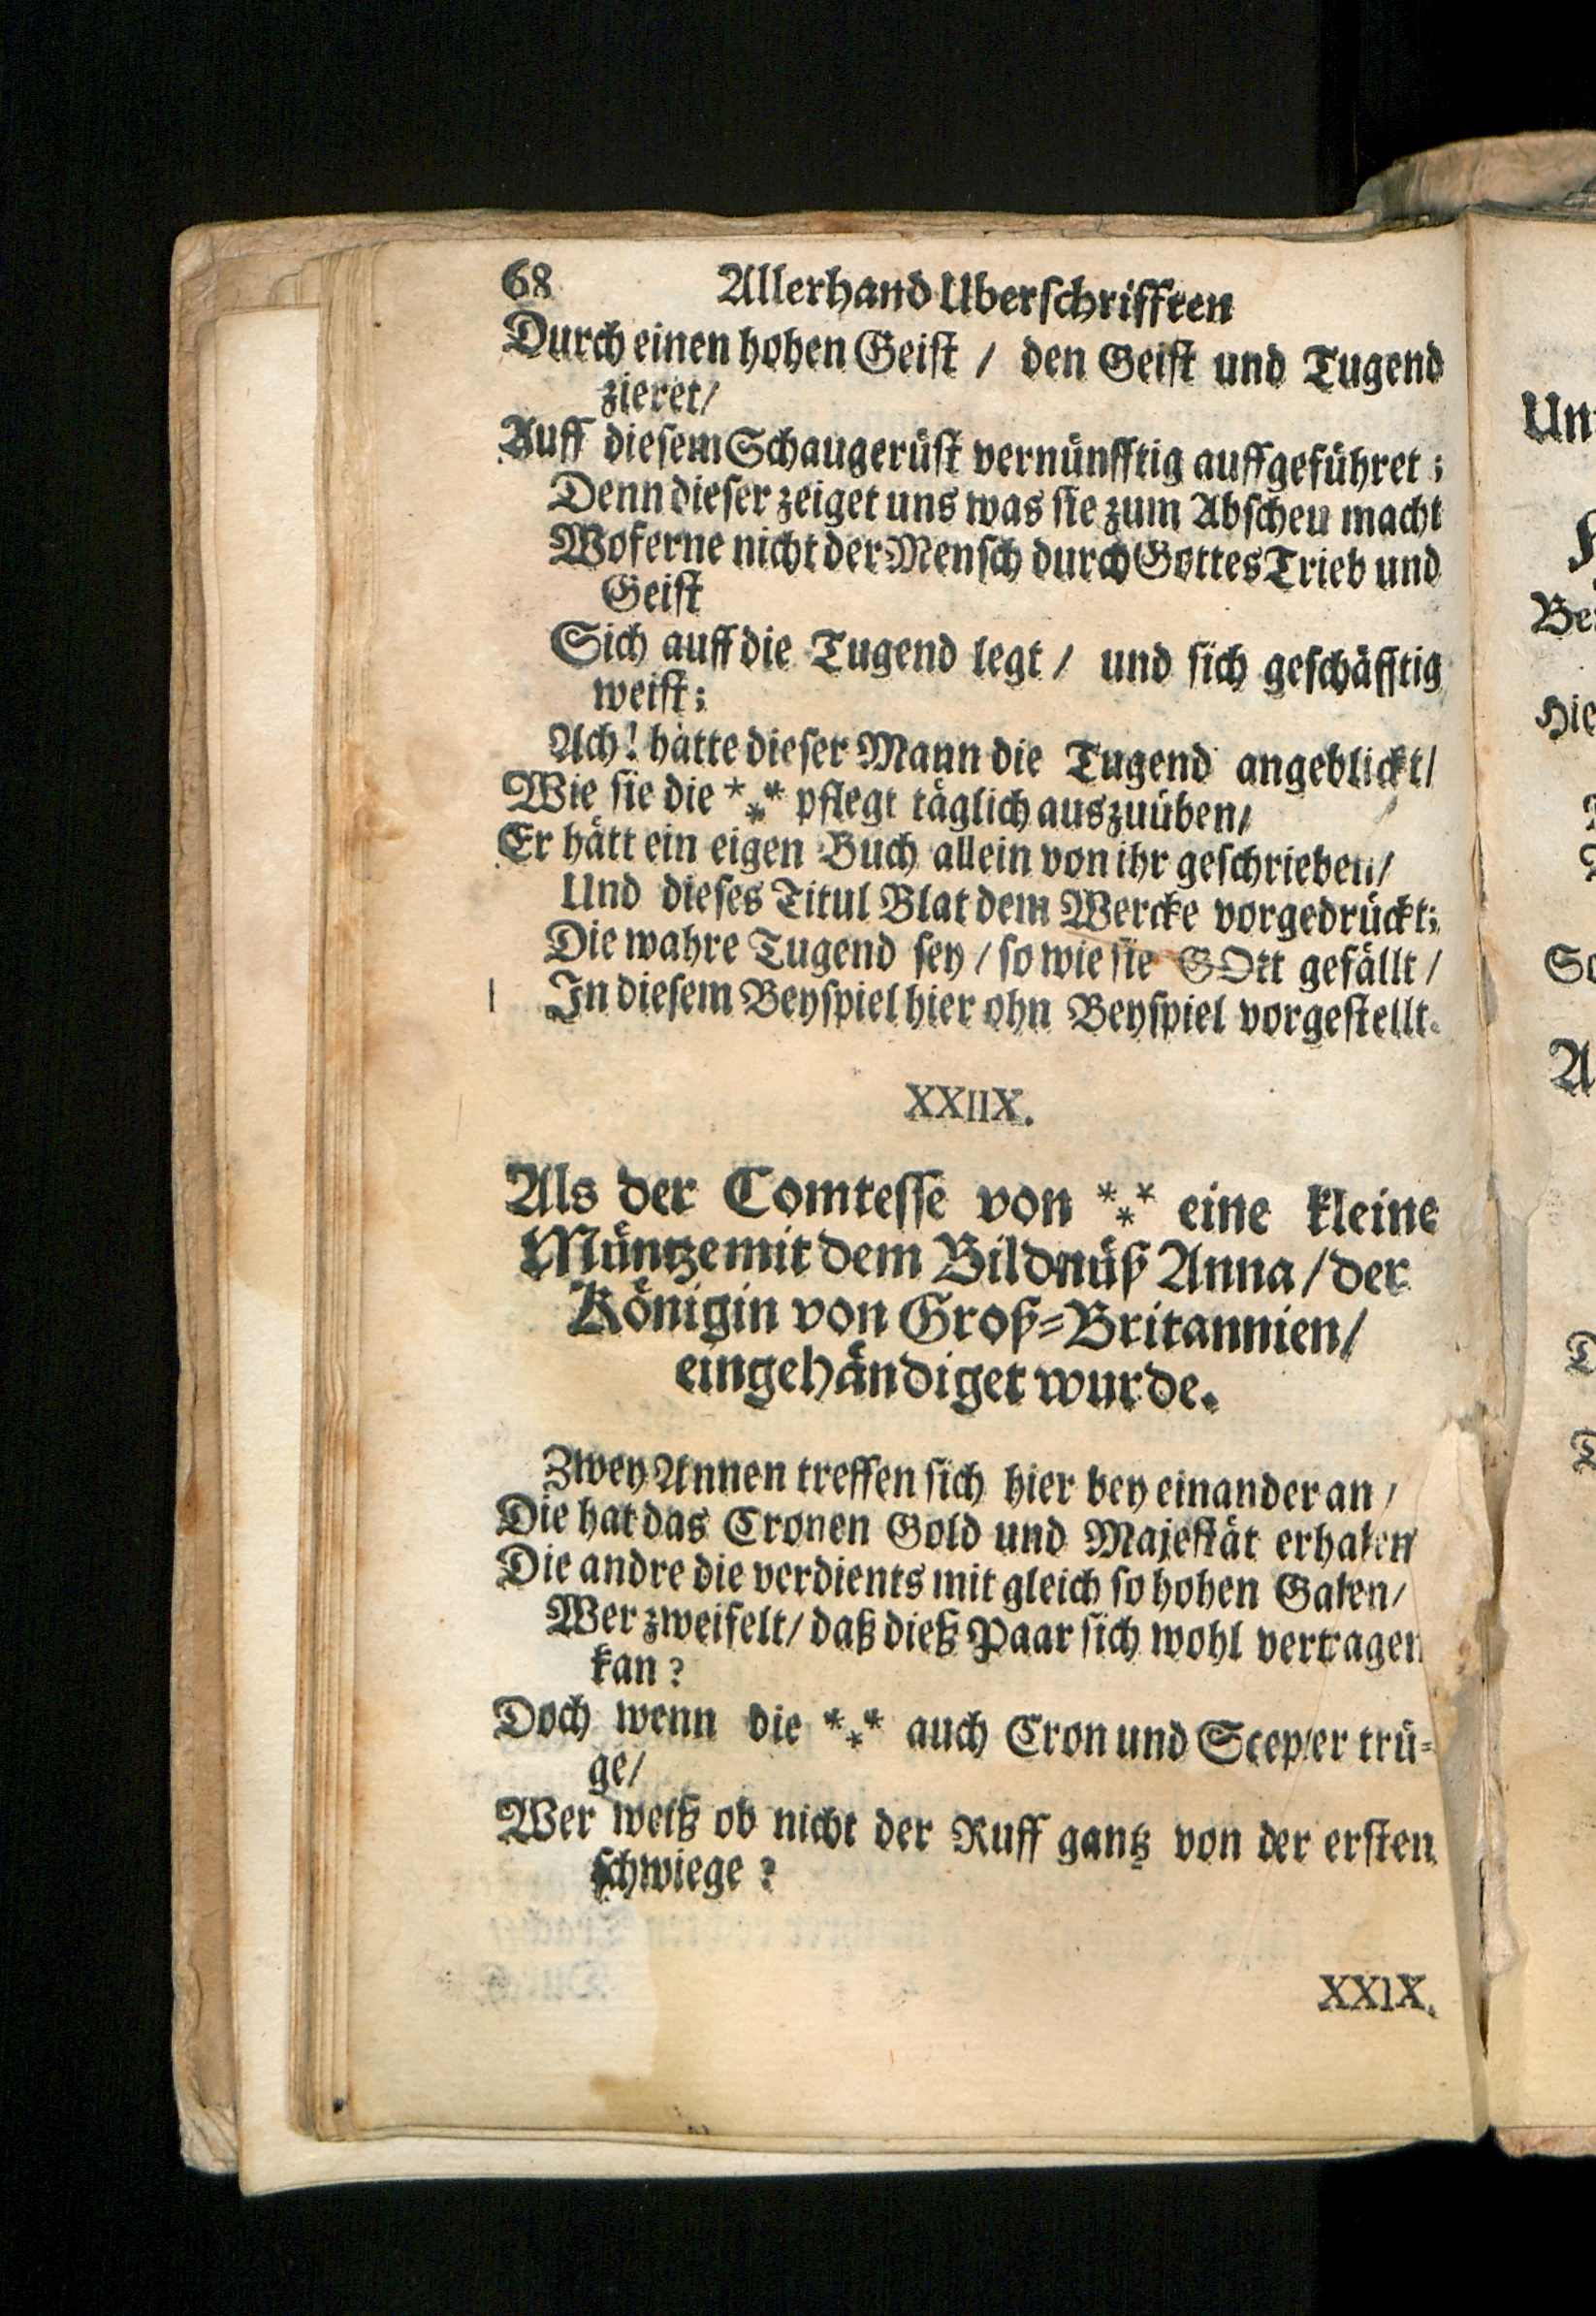 68 Allerhand Uberſchrifften
Durch einen hohen Geiſt / den Geiſt und Tugend
zieret/
Auff dieſem Schaugerüſt vernünfftig auffgeführet;
Denn dieſer zeiget uns was ſie zum Abſcheu macht
Woferne nicht der Menſch durch Gottes Trieb und
Geiſt
Sich auff die Tugend legt / und ſich geſchäfftig
weiſt;
Ach! hätte dieſer Mann die Tugend angeblickt/
Wie ſie die *⁎* pflegt täglich auszuüben/
Er hätt ein eigen Buch allein von ihr geſchrieben/
Und dieſes Titul Blat dem Wercke vorgedrückt;
Die wahre Tugend ſey / ſo wie ſie GOtt gefällt /
In dieſem Beyſpiel hier ohn Beyſpiel vorgeſtellt.
XXIIX.
Als der Comteſſe von *⁎* eine kleine
Müntze mit dem Bildnüß Anna / der
Königin von Groß-Britannien/
eingehändiget wurde.
Zwey Annen treffen ſich hier bey einander an /
Die hat das Cronen Gold und Majeſtät erhaben
Die andre die verdients mit gleich ſo hohen Gaben/
Wer zweifelt/ daß dieß Paar ſich wohl vertragen
kan?
Doch wenn die *⁎* auch Cron und Scepter trü-
ge/
Wer weiß ob nicht der Ruff gantz von der erſten
ſchwiege?
XXIX.
Un
Be
Hie
So
A